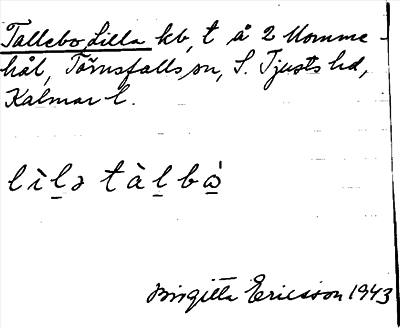 Tallebo, Lilla kb, t å 2 Momme-
hål, Törnsfalls sn, S. Tjusts hd,
Kalmar l.
lìl̲ə tàl̲bò̲
Birgitta Ericsson 1943